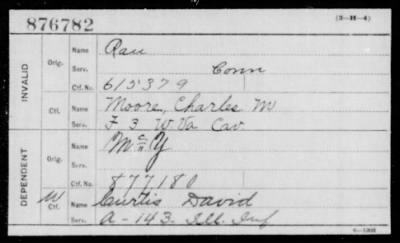 876782 (3-H-4)
INVALID
Orig. Name Rau
Serv. Conn
Ctf. No. 615379
Ctf. Name Moore, Charles M
Serv. F 3 W Va Cav
DEPENDENT
Orig. Name
Serv.
Ctf. No. 877180
W Ctf. Name Curtis David
Serv. A-143 Ill. Inf